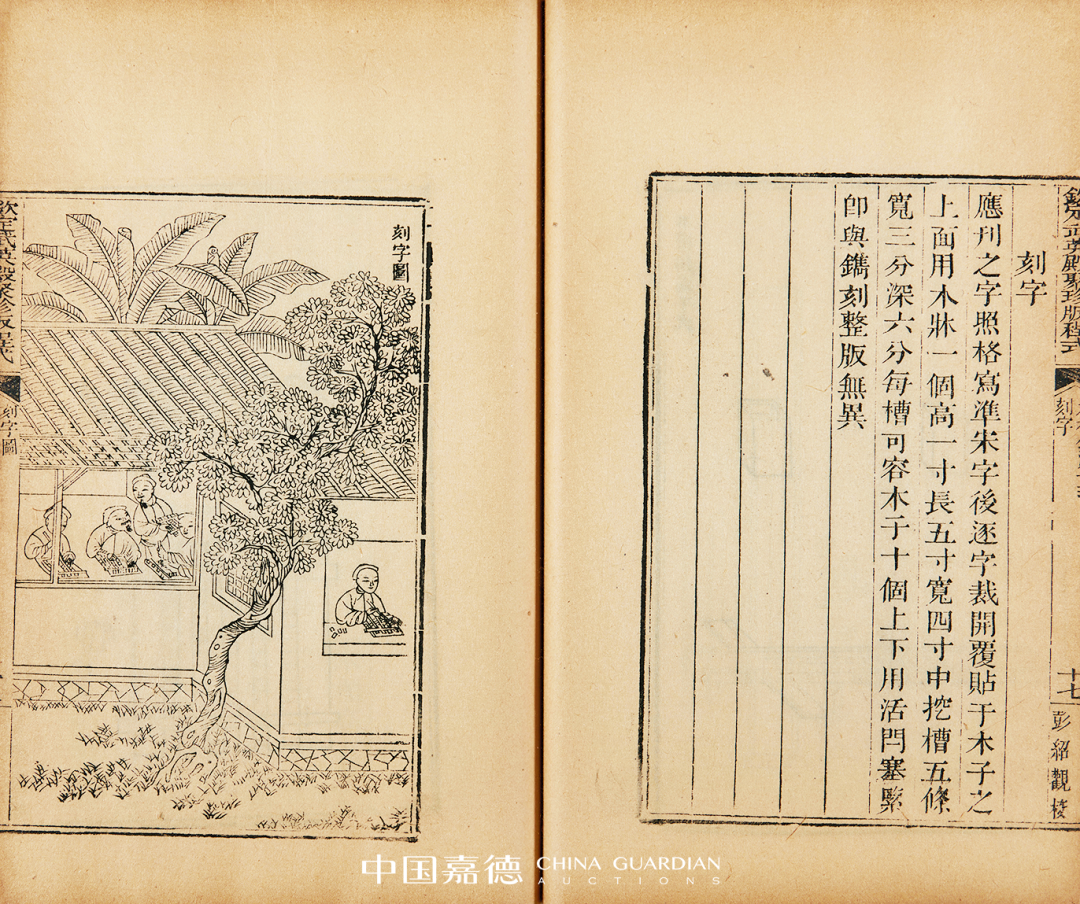 欽定武英殿聚珍版程式
刻字
十七
彭紹觀校
刻字
應刊之字照格寫準宋字後逐字裁開覆貼于木子之
上面用木牀一個高一寸長五寸寬四寸中挖槽五條
寬三分深六分每槽可容木子十個上下用活閂塞緊
卽與鐫刻整版無異
刻字圖
欽定武英殿聚珍版程式
刻字圖
中国嘉德 CHINA GUARDIAN
AUCTIONS